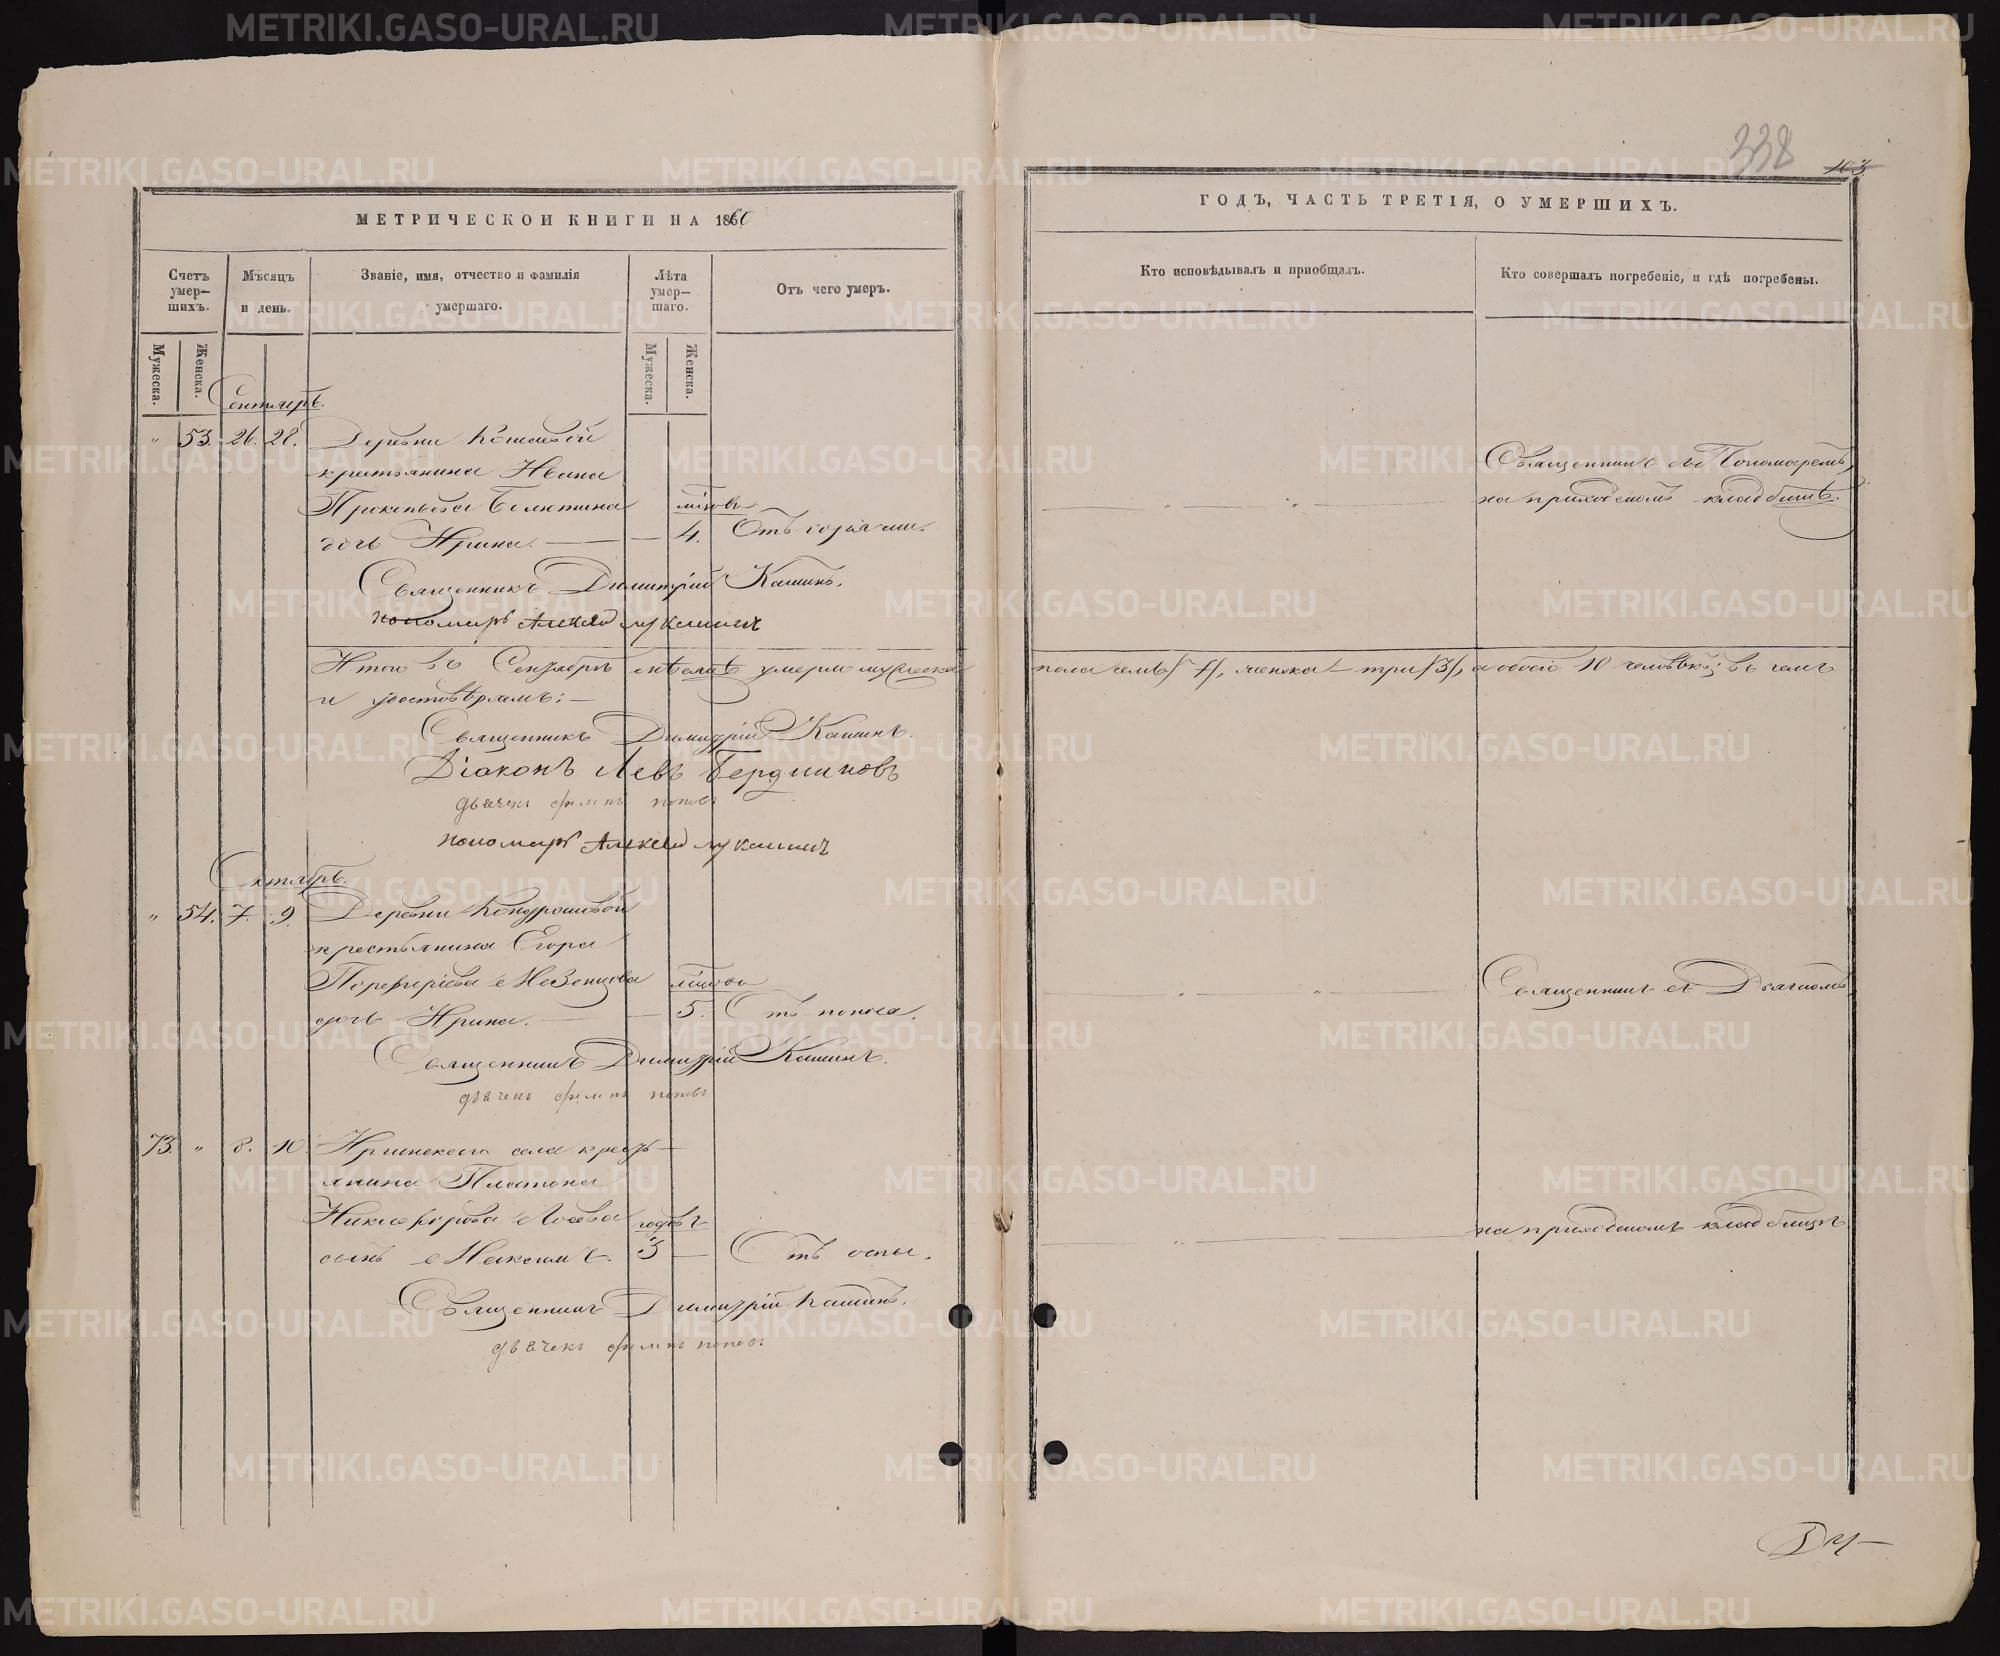 338
103.
МЕТРИЧЕСКОЙ КНИГИ НА 1860
ГОДЪ, ЧАСТЬ ТРЕТІЯ, О УМЕРШИХЪ.
Счетъ умер-шихъ.
Мужеска.
Женска.
Мѣсяцъ и день.
Званіе, имя, отчество и фамилія умершаго.
Лѣта умер-шаго.
Мужеска.
Женска.
Отъ чего умеръ.
Кто исповѣдывалъ и пріобщалъ.
Кто совершалъ погребеніе, и гдѣ погребены.
Сентябрь.
" 53. 26. 28. Деревни
крестьянина Ивана
Прокопьева
дочь Ирина. — 4. Отъ горячки.
Священникъ съ Пономаремъ,
на приходскомъ кладбищѣ.
Священникъ Димитрій Кашинъ.
пономарь Алексей Лукашинъ
Итого въ Сентябрѣ мѣсяцѣ умерло мужеска
пола семь /7/, женска — три /3/, а обоего 10 человѣкъ; въ чемъ
и удостовѣряемъ: —
Священникъ Димитрій Кашинъ.
Діаконъ Левъ Бердниковъ
дьячекъ филипъ поповъ
пономарь Алексей Лукашинъ
Октябрь.
" 54. 7. 9. Деревни Кондрашовой
крестьянина Егора
Порфирьева
дочь Ирина. — 5. Отъ поноса.
Священникъ съ Дьячкомъ,
Священникъ Димитрій Кашинъ.
дьячекъ филипъ поповъ
73. " 8. 10. Иргинскаго села кресть-
янина Платона
Никифорова Лосева годовъ
сынъ Максимъ. 3 — Отъ оспы.
на приходскомъ кладбищѣ.
Священникъ Димитрій Кашинъ.
дьячекъ филипъ поповъ
METRIKI.GASO-URAL.RU